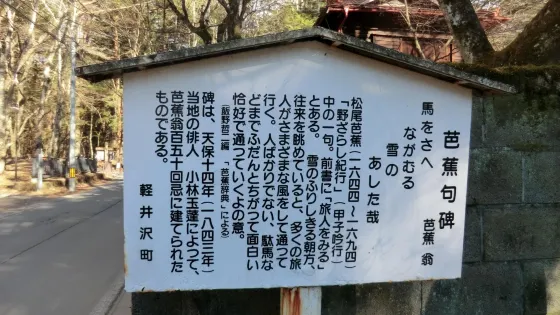 芭蕉句碑
芭蕉 翁
馬をさへ
ながむる
雪の
あした哉
松尾芭蕉(一六四四～一六九四)
「野ざらし紀行」(甲子吟行)
中の一句。前書に「旅人をみる」
とある。 雪のふりしきる朝方、
往来を眺めていると、多くの旅
人がさまざまな風をして通って
行く。人ばかりでない、駄馬な
どまでふだんとちがつて面白い
恰好で通っていくよの意。
(飯野哲二編 「芭蕉辞典」による)
碑は、天保十四年(一八四三年)
当地の俳人 小林玉蓬によって、
芭蕉翁百五十回忌に建てられた
ものである。
軽井沢町